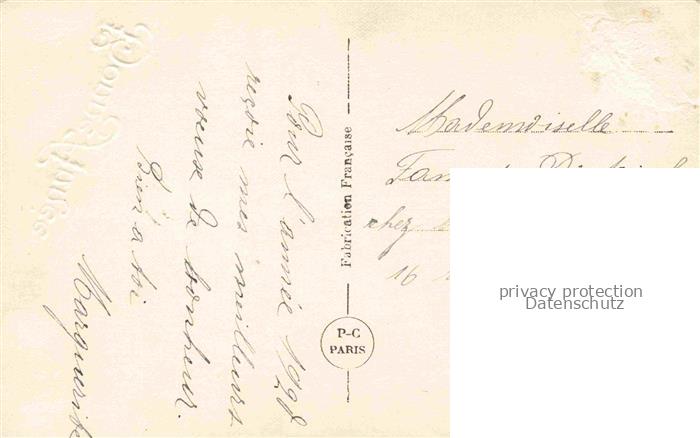 Bonne Année
Pour l'année 1928
reçoie mes meilleurs
voeuse de bonheur.
Bien a toi
Marguerite
Fabrication Française
P-C
PARIS
Mademoiselle
chez
16
privacy protection
Datenschutz